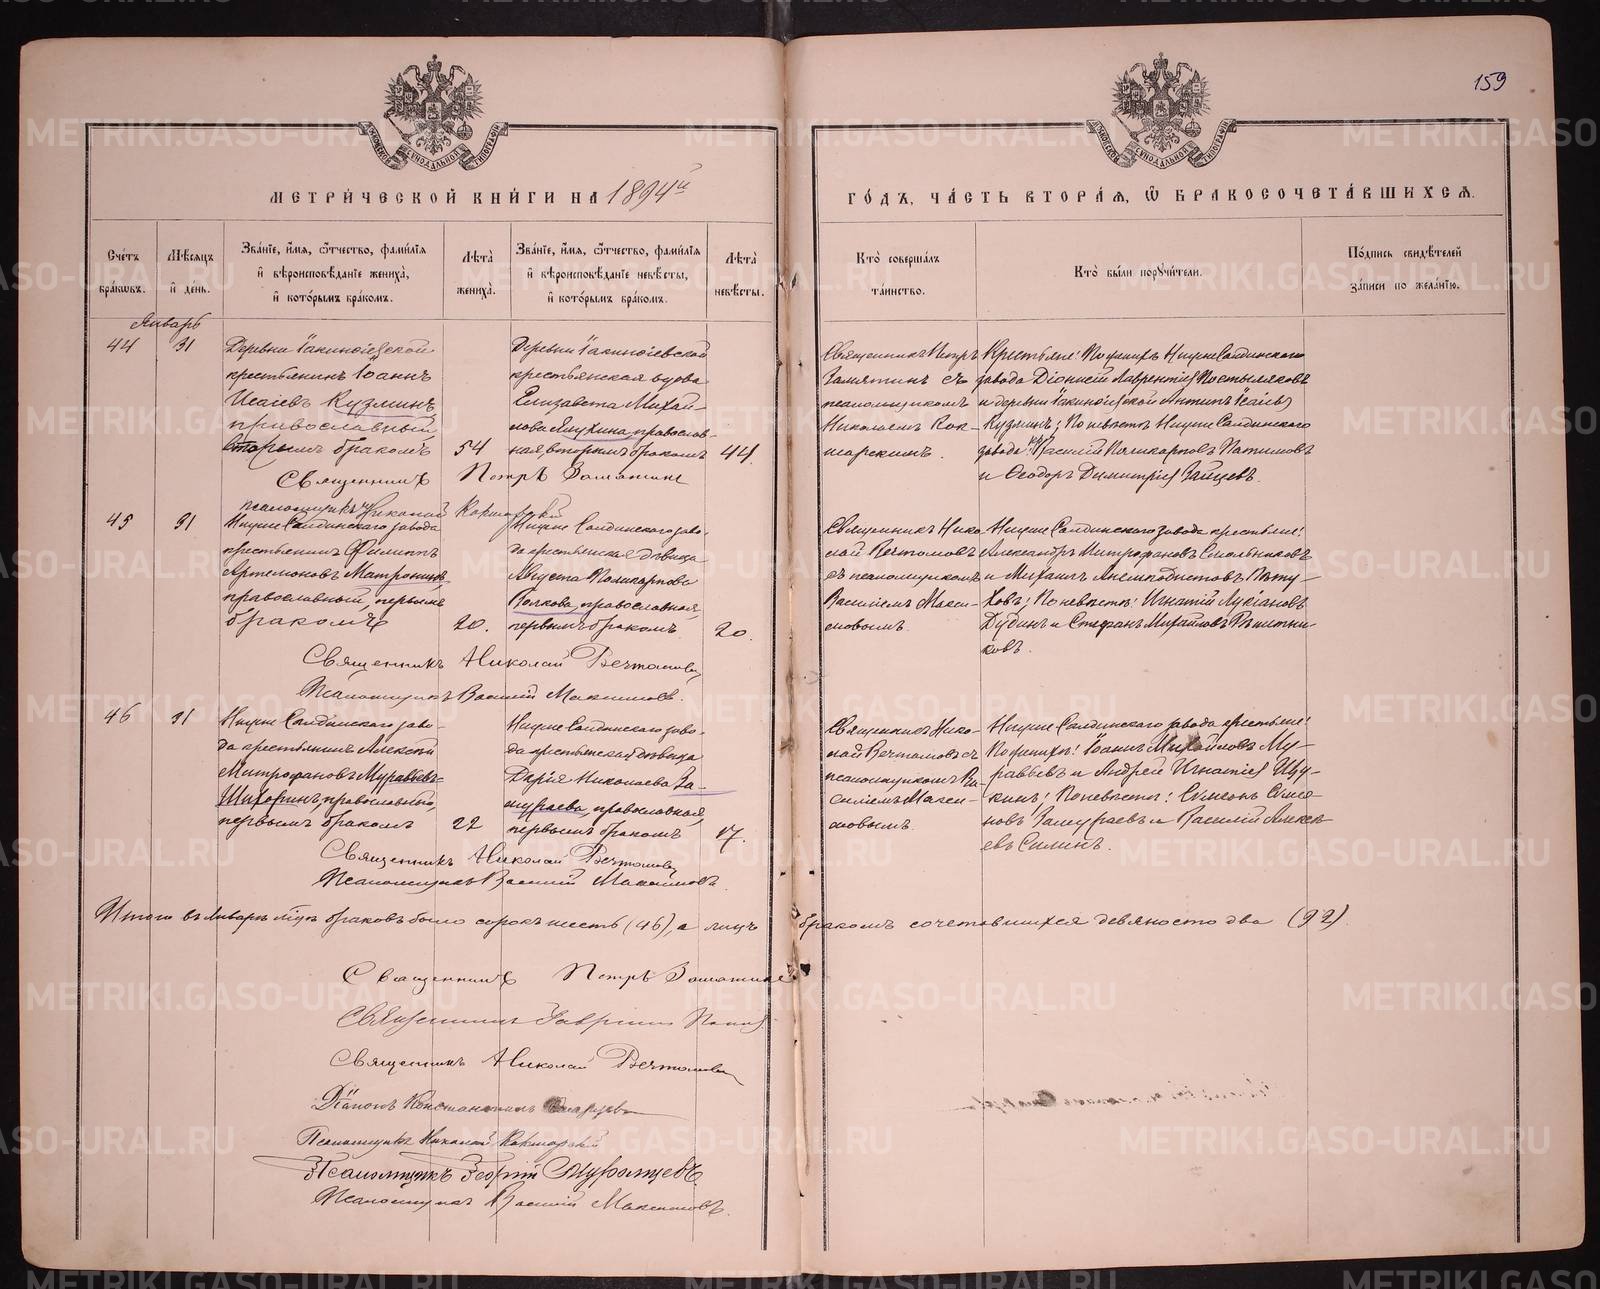 159
МЕТРИ́ЧЕСКОЙ КНИ́ГИ НА 1894й
ГО́ДЪ, ЧА́СТЬ ВТОРА́Я, Ѡ БРАКОСОЧЕТА́ВШИХСЯ.
Сче́тъ бра́кѡвъ.
Мѣ́сяцъ и҆ де́нь.
Зва́нїе, и҆́мя, ѻ҆́тчество, фами́лїя и҆ вѣроисповѣ́данїе жениха̀, и҆ кото́рымъ бра́комъ.
Лѣ́та̀ жениха̀.
Зва́нїе, и҆́мя, ѻ҆́тчество, фами́лїя и҆ вѣроисповѣ́данїе невѣ́сты, и҆ кото́рымъ бра́комъ.
Лѣ́та̀ невѣ́сты.
Кто̀ соверша́лъ та́инство.
Кто̀ бы́ли порꙋчи́тели.
По́дпись свидѣ́телей за́писи по жела́нїю.
Январь
44
31
Деревни Iакинѳiевской
крестьянинъ Iоаннъ
Исаiевъ Кузминъ,
православный
вторымъ бракомъ
54
Деревни Iакинѳiевской
крестьянская вдова
Елизавета Михай-
лова Япухина, православ-
ная, вторымъ бракомъ
44.
Священникъ Петръ
Замятинъ съ
псаломщикомъ
Николаемъ Кок-
шарскимъ.
Крестьяне: По женихѣ Нижне Салдинскаго
завода Дiонисiй Лаврентiевъ Постыляковъ
и деревни Iакинѳiевской Антипъ Исаiевъ
Кузминъ; По невѣстѣ Нижне Салдинскаго
завода: Василiй Поликарповъ Патимовъ
и Ѳеодоръ Димитрiевъ Зайцевъ.
Священникъ Петръ Замятинъ
псаломщикъ Николай Кокшарскiй
45
31
Нижне Салдинскаго завода
крестьянинъ Филиппъ
Артемоновъ Матрошинъ,
православный, первымъ
бракомъ
20.
Нижне Салдинскаго заво-
да крестьянская дѣвица
Августа Поликарпова
Волкова, православная,
первымъ бракомъ
20.
Священникъ Нико-
лай Вечтомовъ
съ псаломщикомъ
Василiемъ Макси-
мовымъ.
Нижне Салдинскаго завода крестьяне:
Александръ Митрофановъ Смольниковъ
и Михаилъ Анемподистовъ Пѣту-
ховъ; По невѣстѣ: Игнатiй Лукiановъ
Дудинъ и Стефанъ Михайловъ Рѣшетни-
ковъ.
Священникъ Николай Вечтомовъ
Псаломщикъ Василiй Максимовъ
46
31
Нижне Салдинскаго заво-
да крестьянинъ Алексѣй
Митрофановъ Муравьевъ-
Шихоринъ, православный,
первымъ бракомъ
22
Нижне Салдинскаго заво-
да крестьянская дѣвица
Дарiя Николаева За-
мураева, православная,
первымъ бракомъ
17.
Священникъ Нико-
лай Вечтомовъ съ
псаломщикомъ Ва-
силiемъ Макси-
мовымъ.
Нижне Салдинскаго завода крестьяне:
По женихѣ: Iоаннъ Михайловъ Му-
равьевъ и Андрей Игнатiевъ Щу-
кинъ; По невѣстѣ: Симеонъ Симео-
новъ Замураевъ и Василiй Алексѣ-
евъ Силинъ.
Священникъ Николай Вечтомовъ
Псаломщикъ Василiй Максимовъ.
Итого въ Январѣ м҃цѣ браковъ было сорокъ шесть (46), а лицъ бракомъ сочетавшихся девяносто два (92).
Священникъ Петръ Замятинъ
Священникъ Гаврiилъ Поповъ
Священникъ Николай Вечтомовъ
Дiаконъ Константинъ
Псаломщикъ Николай Кокшарскiй
Псаломщикъ Георгiй
Псаломщикъ Василiй Максимовъ.
METRIKI.GASO-URAL.RU